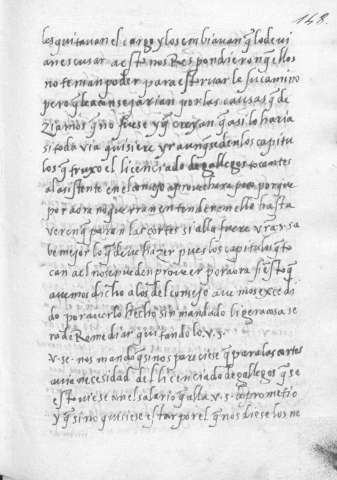 148.
les quitavan el cargo y los embiavan q̃ lo devi
an escusar a esto nos Respondieron q̃ ellos
no tenian poder para estorvar le su camino
pero q̃ le aconsejarian por las causas q̃ de
ziamos q̃ no fuese y q̃ creyan q̃ asi lo haria
si toda via quisiere yr aunq̃ den los capitu
los q̃ truxo el licenciado de gallegos tocantes
al asistente en el consejo aprovechara poco porque
por aora no querran entender en ello hasta
ver en q̃ paran las cortes si alla fuere vra s. sa
be mejor lo q̃ deve hazer pues los capitulos q̃ to
can a el no se pueden proveer por aora si esto q̃
avemos dicho a los del consejo avemos excedi
do por averlo hecho sin mandado ligera cosa se
ra de Remediar quitandolo. v. s.
v. s. nos mando q̃ si nos pareciese q̃ para las cortes
avia necesidad del licenciado de gallegos q̃ se
estuviese con el salario q̃ alla v. s. le prometio
y q̃ si no quisiese estar por el q̃ nos diese los me